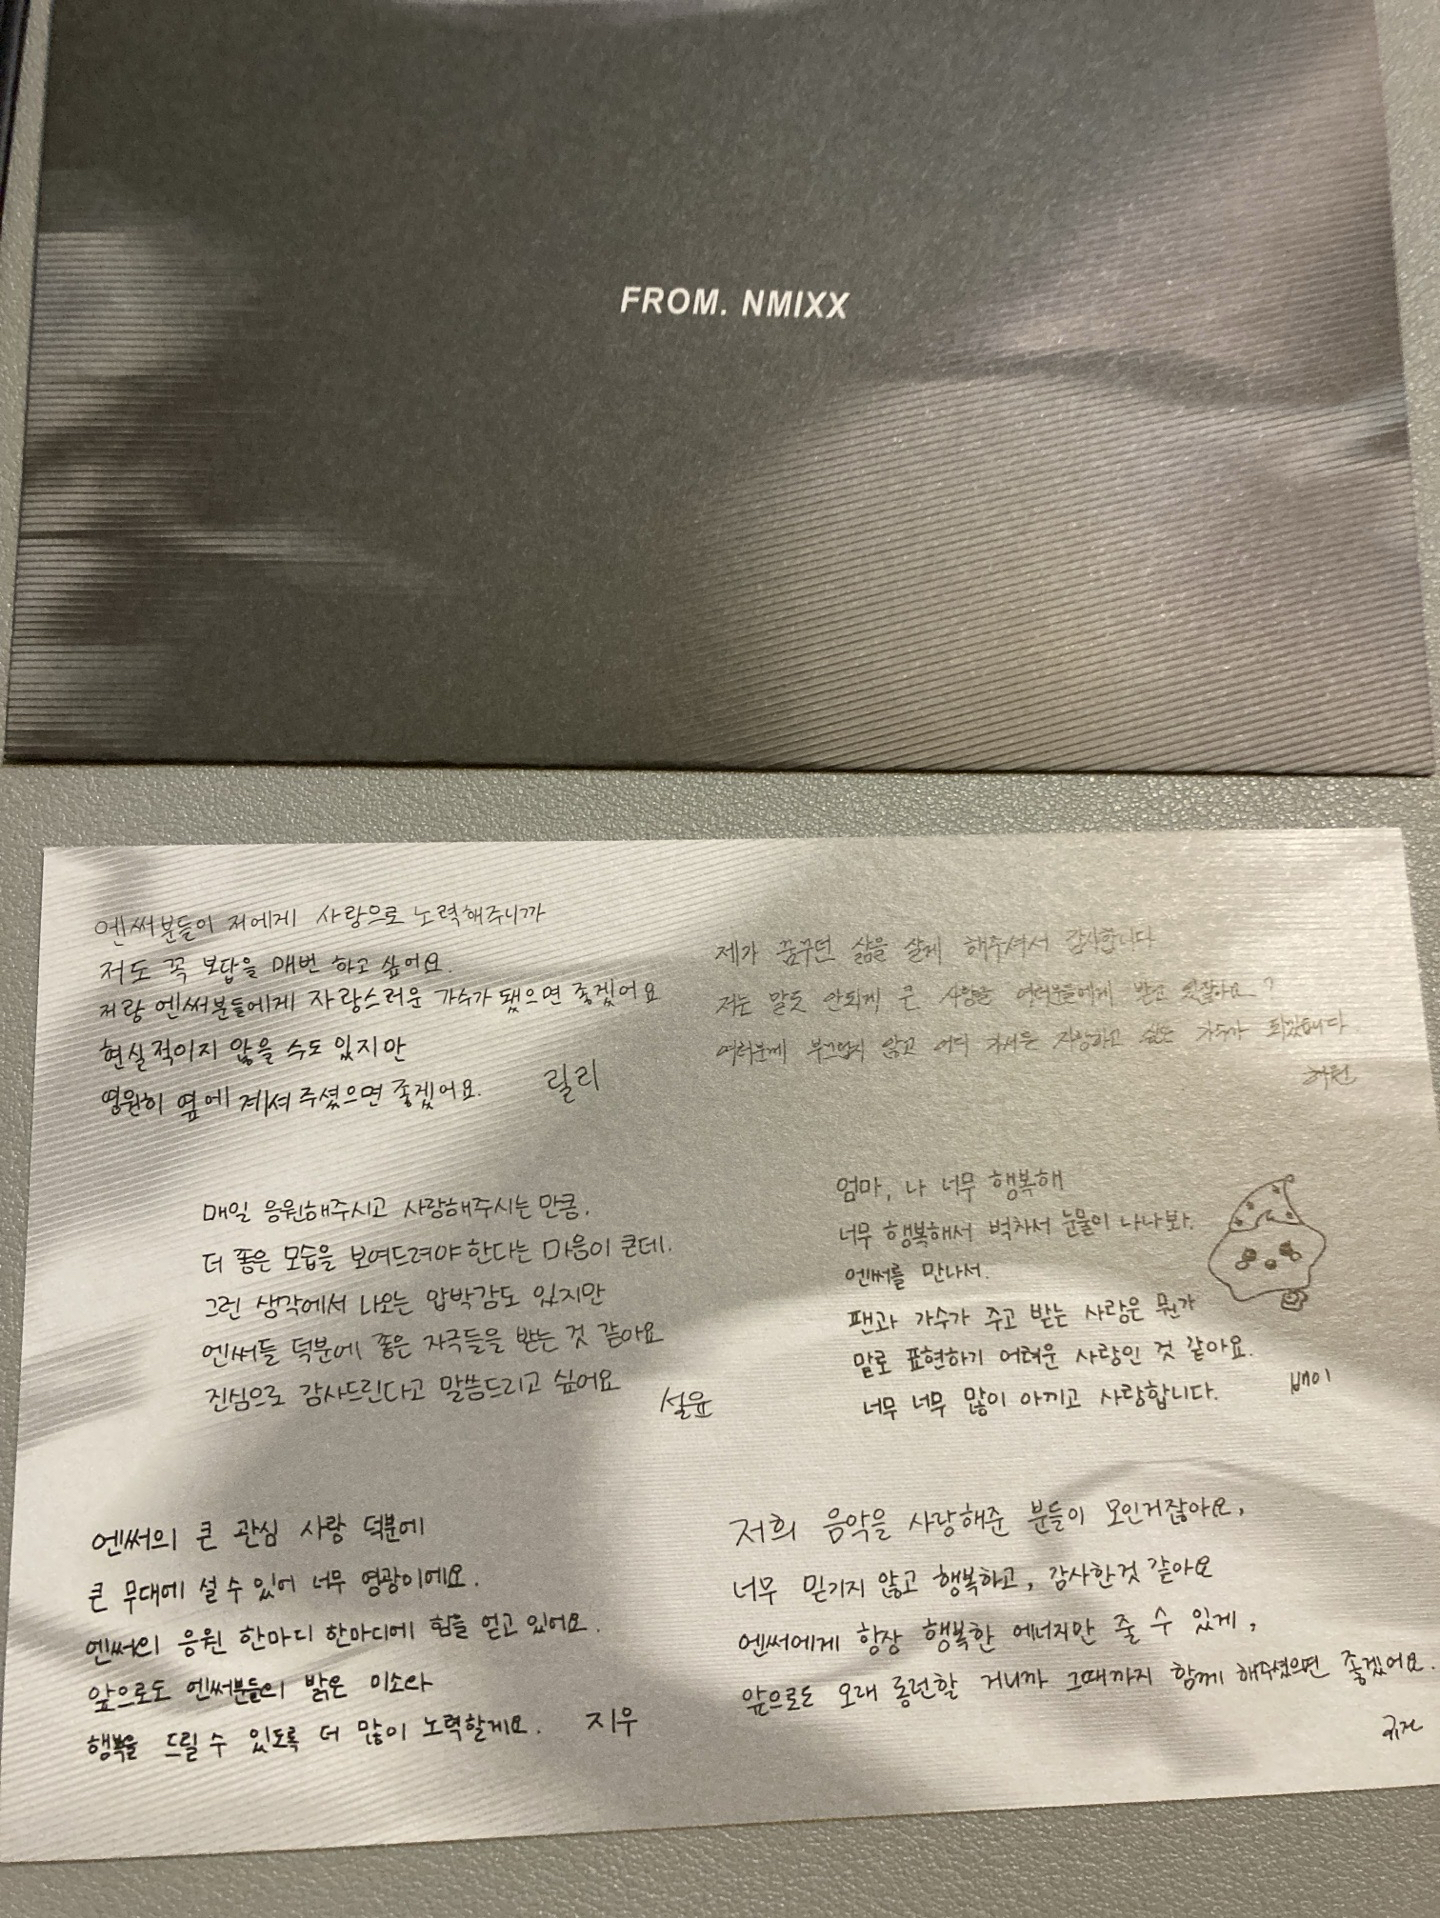 FROM. NMIXX
엔써분들이 저에게 사랑으로 노력해주니까
저도 꼭 보답을 매번 하고 싶어요.
저랑 엔써분들에게 자랑스러운 가수가 됐으면 좋겠어요
현실적이지 않을 수도 있지만
영원히 옆에 계셔 주셨으면 좋겠어요.
릴리
제가 꿈꾸던 삶을 살게 해주셔서 감사합니다
저는 말도 안되게 큰 사랑을 여러분들에게 받고 있잖아요?
여러분께 부끄럽지 않고 어디 가서든 자랑하고 싶은 가수가 되겠습니다
해원
매일 응원해주시고 사랑해주시는 만큼,
더 좋은 모습을 보여드려야 한다는 마음이 큰데.
그런 생각에서 나오는 압박감도 있지만
엔써들 덕분에 좋은 자극들을 받는 것 같아요
진심으로 감사드린다고 말씀드리고 싶어요
설윤
엄마, 나 너무 행복해
너무 행복해서 벅차서 눈물이 나나봐.
엔써를 만나서.
팬과 가수가 주고 받는 사랑은 뭔가
말로 표현하기 어려운 사랑인 것 같아요.
너무 너무 많이 아끼고 사랑합니다.
배이
엔써의 큰 관심 사랑 덕분에
큰 무대에 설 수 있어 너무 영광이에요.
엔써의 응원 한마디 한마디에 힘을 얻고 있어요.
앞으로도 엔써분들의 밝은 미소와
행복을 드릴 수 있도록 더 많이 노력할게요.
지우
저희 음악을 사랑해준 분들이 모인거잖아요,
너무 믿기지 않고 행복하고, 감사한것 같아요
엔써에게 항상 행복한 에너지만 줄 수 있게,
앞으로도 오래 롱런할 거니까 그때까지 함께 해주셨으면 좋겠어요.
규진